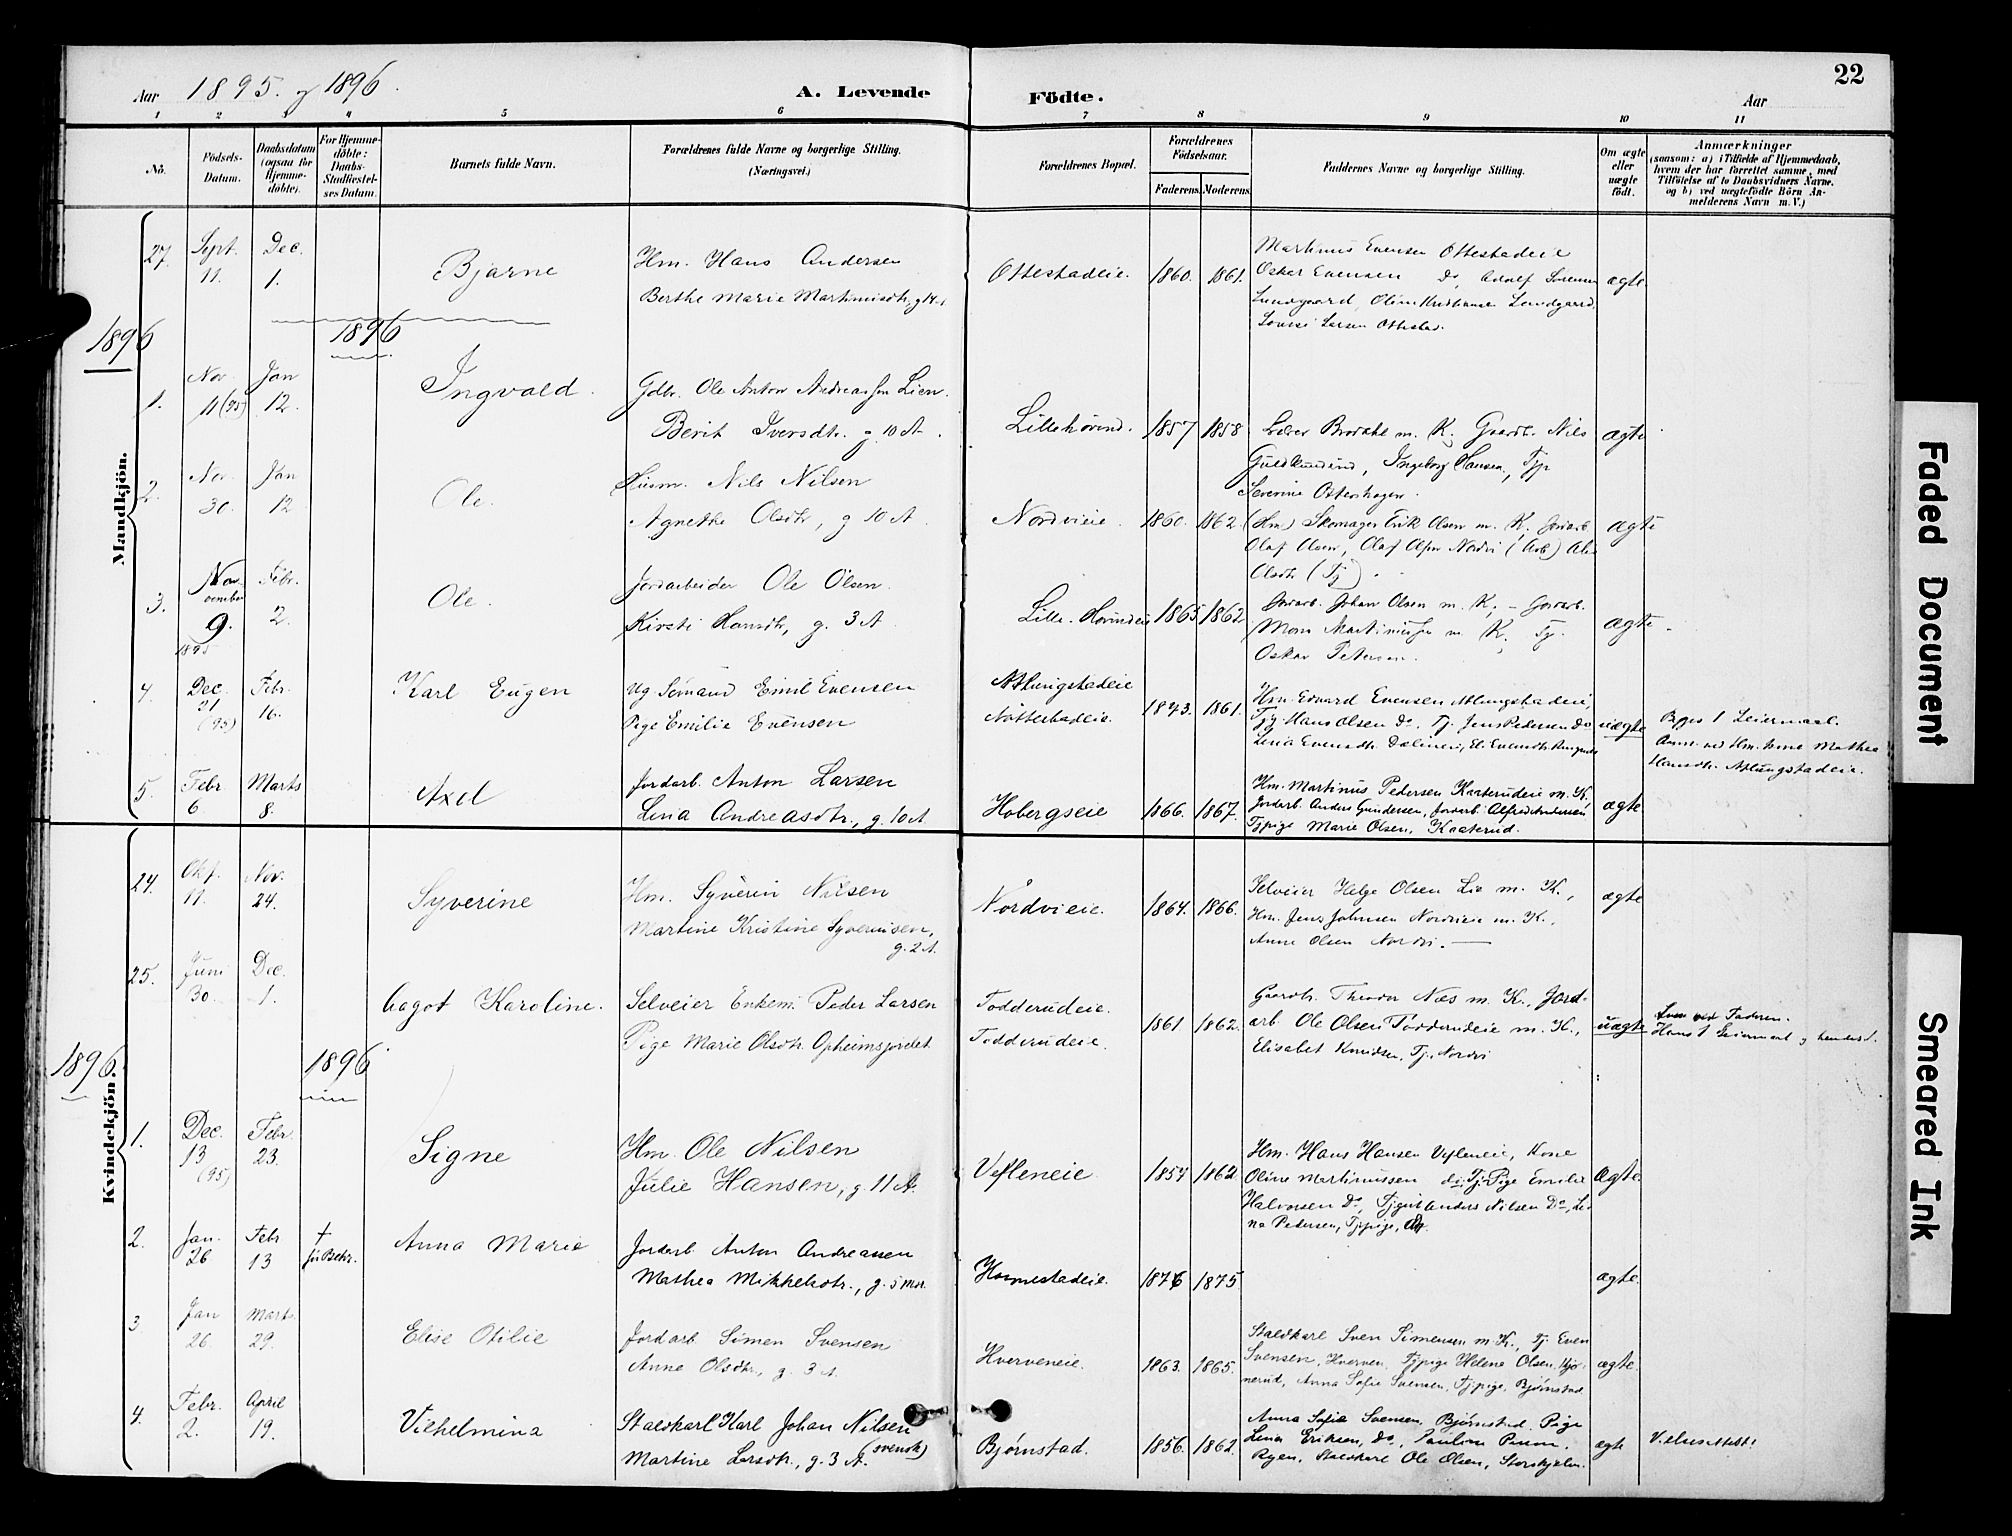 Aar 1895. og 1896.
A. Levende Födte.
Aar
22
1 2 3 4 5 6 7 8 9 10 11
No.
Födsels-Datum.
Daabsdatum (ogsaa for Hjemme-döbte).
For Hjemme-döbte: Daabs-Stadfæstel-ses Datum.
Barnets fulde Navn.
Forældrenes fulde Navne og borgerlige Stilling. (Næringsvei.)
Forældrenes Bopæl.
Forældrenes Födselsaar.
Faderens. Moderens.
Faddernes Navne og borgerlige Stilling.
Om ægte eller uægte födt.
Anmærkninger
(saasom: a) i Tilfælde af Hjemmedaab, hvem der har forrettet samme, med Tilföielse af to Daabsvidners Navne, og b) ved uægtefödte Börn An-melderens Navn m. V.)
Mandkjön.
27. Sept. 11. Dec. 1. Bjarne
Hm. Hans Andersen
Berthe Marie Martinusdtr. g 14
Ottestadeie. 1860. 1861.
Martinus Evensen Ottestadeie
Oskar Evensen Do, Adolf Sørensen
Lundgaard, Oline Kristiansen Lundgaard,
Lovise Larsen Ottestad.
ægte
1896
1896
1. Nov. 11 (95) Jan 12. Ingvald.
Gdbr. Ole Anton Andreassen Lien.
Berit Iversdtr. g. 10 A.
Lillehovind. 1857 1858
m. K. Gaardb. Nils
Ingeborg Hansen, Tjp
Severine
ægte
2. Nov. 30. Jan 12 Ole.
Husm. Nils Nilsen
Agnethe Olsdtr, g 10 A.
Nordvieie. 1860. 1862.
(Hm) Skomager Erik Olsen m. K. Jordarb.
Olaf Olsen, Olaf Olsen Nordvi (Arb)
Olsdtr (Tj).
ægte
3. November 9. 1895 Febr. 2. Ole.
Jordarbeider Ole Olsen.
Kirsti Hansdtr, g. 3 A
Lille-Hovindeie 1865 1862
Jordarb. Johan Olsen m. K. - Jordarb.
Mons Martiniussen m. K. Tj.
Oskar Petersen.
ægte.
4. Dec. 21 (95) Febr. 16. Karl Eugen
Ug. Sömand Emil Evensen
Pige Emilie Evensen
Atlungstadeie
Nötterstadeie. 1873. 1861.
Hm. Edvard Evensen Atlungstadeie,
Tj. Hans Olsen Do. Tj. Jens Pedersen Do
Lina Evensdtr.
uægte
Begges 1 Leiermaal.
Anm. ved Hm. kone Mathea
Hansdtr. Atlungstadeie.
5. Febr. 6. Marts 8. Axel
Jordarb. Anton Larsen
Lina Andreasdtr., g. 10 A.
Hobergseie 1866. 1867.
Hm. Martinus Pedersen Kaaterudeie m. K.,
Jordarb. Anders Gundersen, Jordarb. Alfred Andersen
Tjpige Marie Olsen, Kaaterud.
ægte
Kvindekjön.
24. Okt. 11. Nov. 24. Syverine
Hm. Syverin Nilsen
Martine Kristine Syverinsen,
g. 2 A.
Nordvieie. 1864. 1866.
Selveier Helge Olsen Lie m. K.,
Hm. Jens Johnsen Nordvieie m. K.,
Anne Olsen Nordvi.
ægte
25. Juni 30. Dec. 1. Aagot Karoline.
Selveier Enkem. Peder Larsen
Pige Marie Olsdtr. Opheimsjordet
Todderudeie.
Todderudeie. 1861. 1862.
Gaardb. Theodor Næs m. K., Jord-
arb. Ole Olsen Todderudeie m. K.,
Elisabet Knudsen, Tj. Nordvi
uægte
ved Faderen.
Hans 1 Leiermaal og hendes 1.
1896.
1896
1. Dec. 13 (95) Febr. 23. Signe
Hm. Ole Nilsen
Julie Hansen, g. 11 A.
Vefleneie 1854 1862
Hm. Hans Hansen Vefleneie, Kone
Oline Martinussen do. Tj. Pige Emilie
Halvorsen Do, Tjgut Anders Nilsen Do, Li-
na Pedersen, Tjpige,
Ægte.
2. Jan. 26 Febr 13 † Anna Marie
Jordarb Anton Andreassen
Mathea Mikkelsdtr., g. 5 Mdr.
Hornestadeie. 1876 1875.
ægte.
3. Jan 26. Marts 29. Elise Otilie
Jordarb Simen Svensen
Anne Olsdtr., g. 3 A
Hverveneie. 1863. 1865.
Staldkarl Sven Simensen m. K., Tj. Even
Svensen, Hverven, Tjpige Helene Olsen,
Anna Sofie Svensen, Tjpige, Bjørnstad
ægte.
4. Febr. 2. April 19. Vilhelmina
Staldkarl Karl Johan Nilsen
(svensk)
Martine Larsdtr., g. 3 A.
Bjørnstad. 1856. 1862.
Anna Sofie Svensen, Bjørnstad. Pige
Lina Eriksen, Do.,
Staldkarl Ole Olsen,
ægte
Faded Document
Smeared Ink